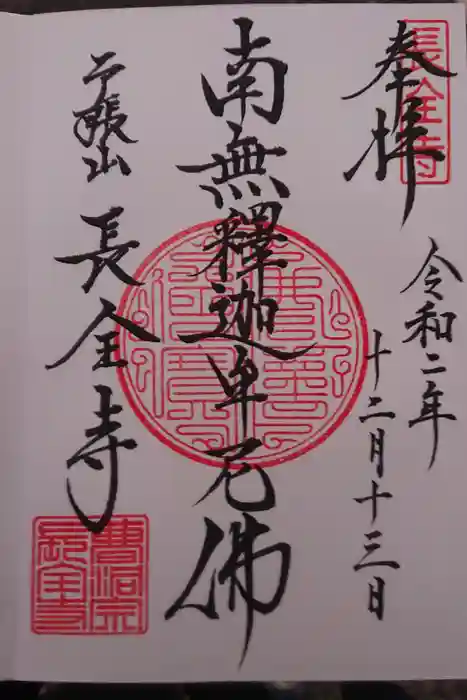 長全寺
奉拝
令和二年
十二月十三日
南無釋迦牟尼佛
長全寺
曹洞宗
長全寺